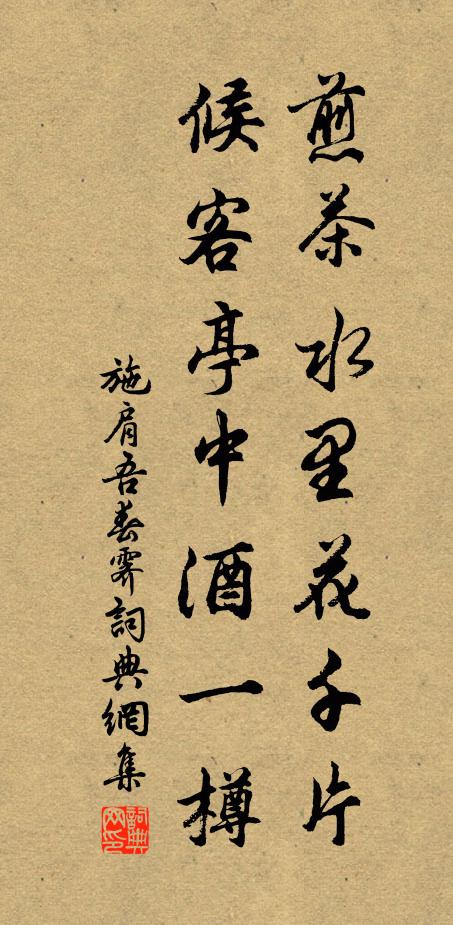 煎茶水里花千片
候客亭中酒一樽
施肩吾春霽詞典網集
詞典
网印